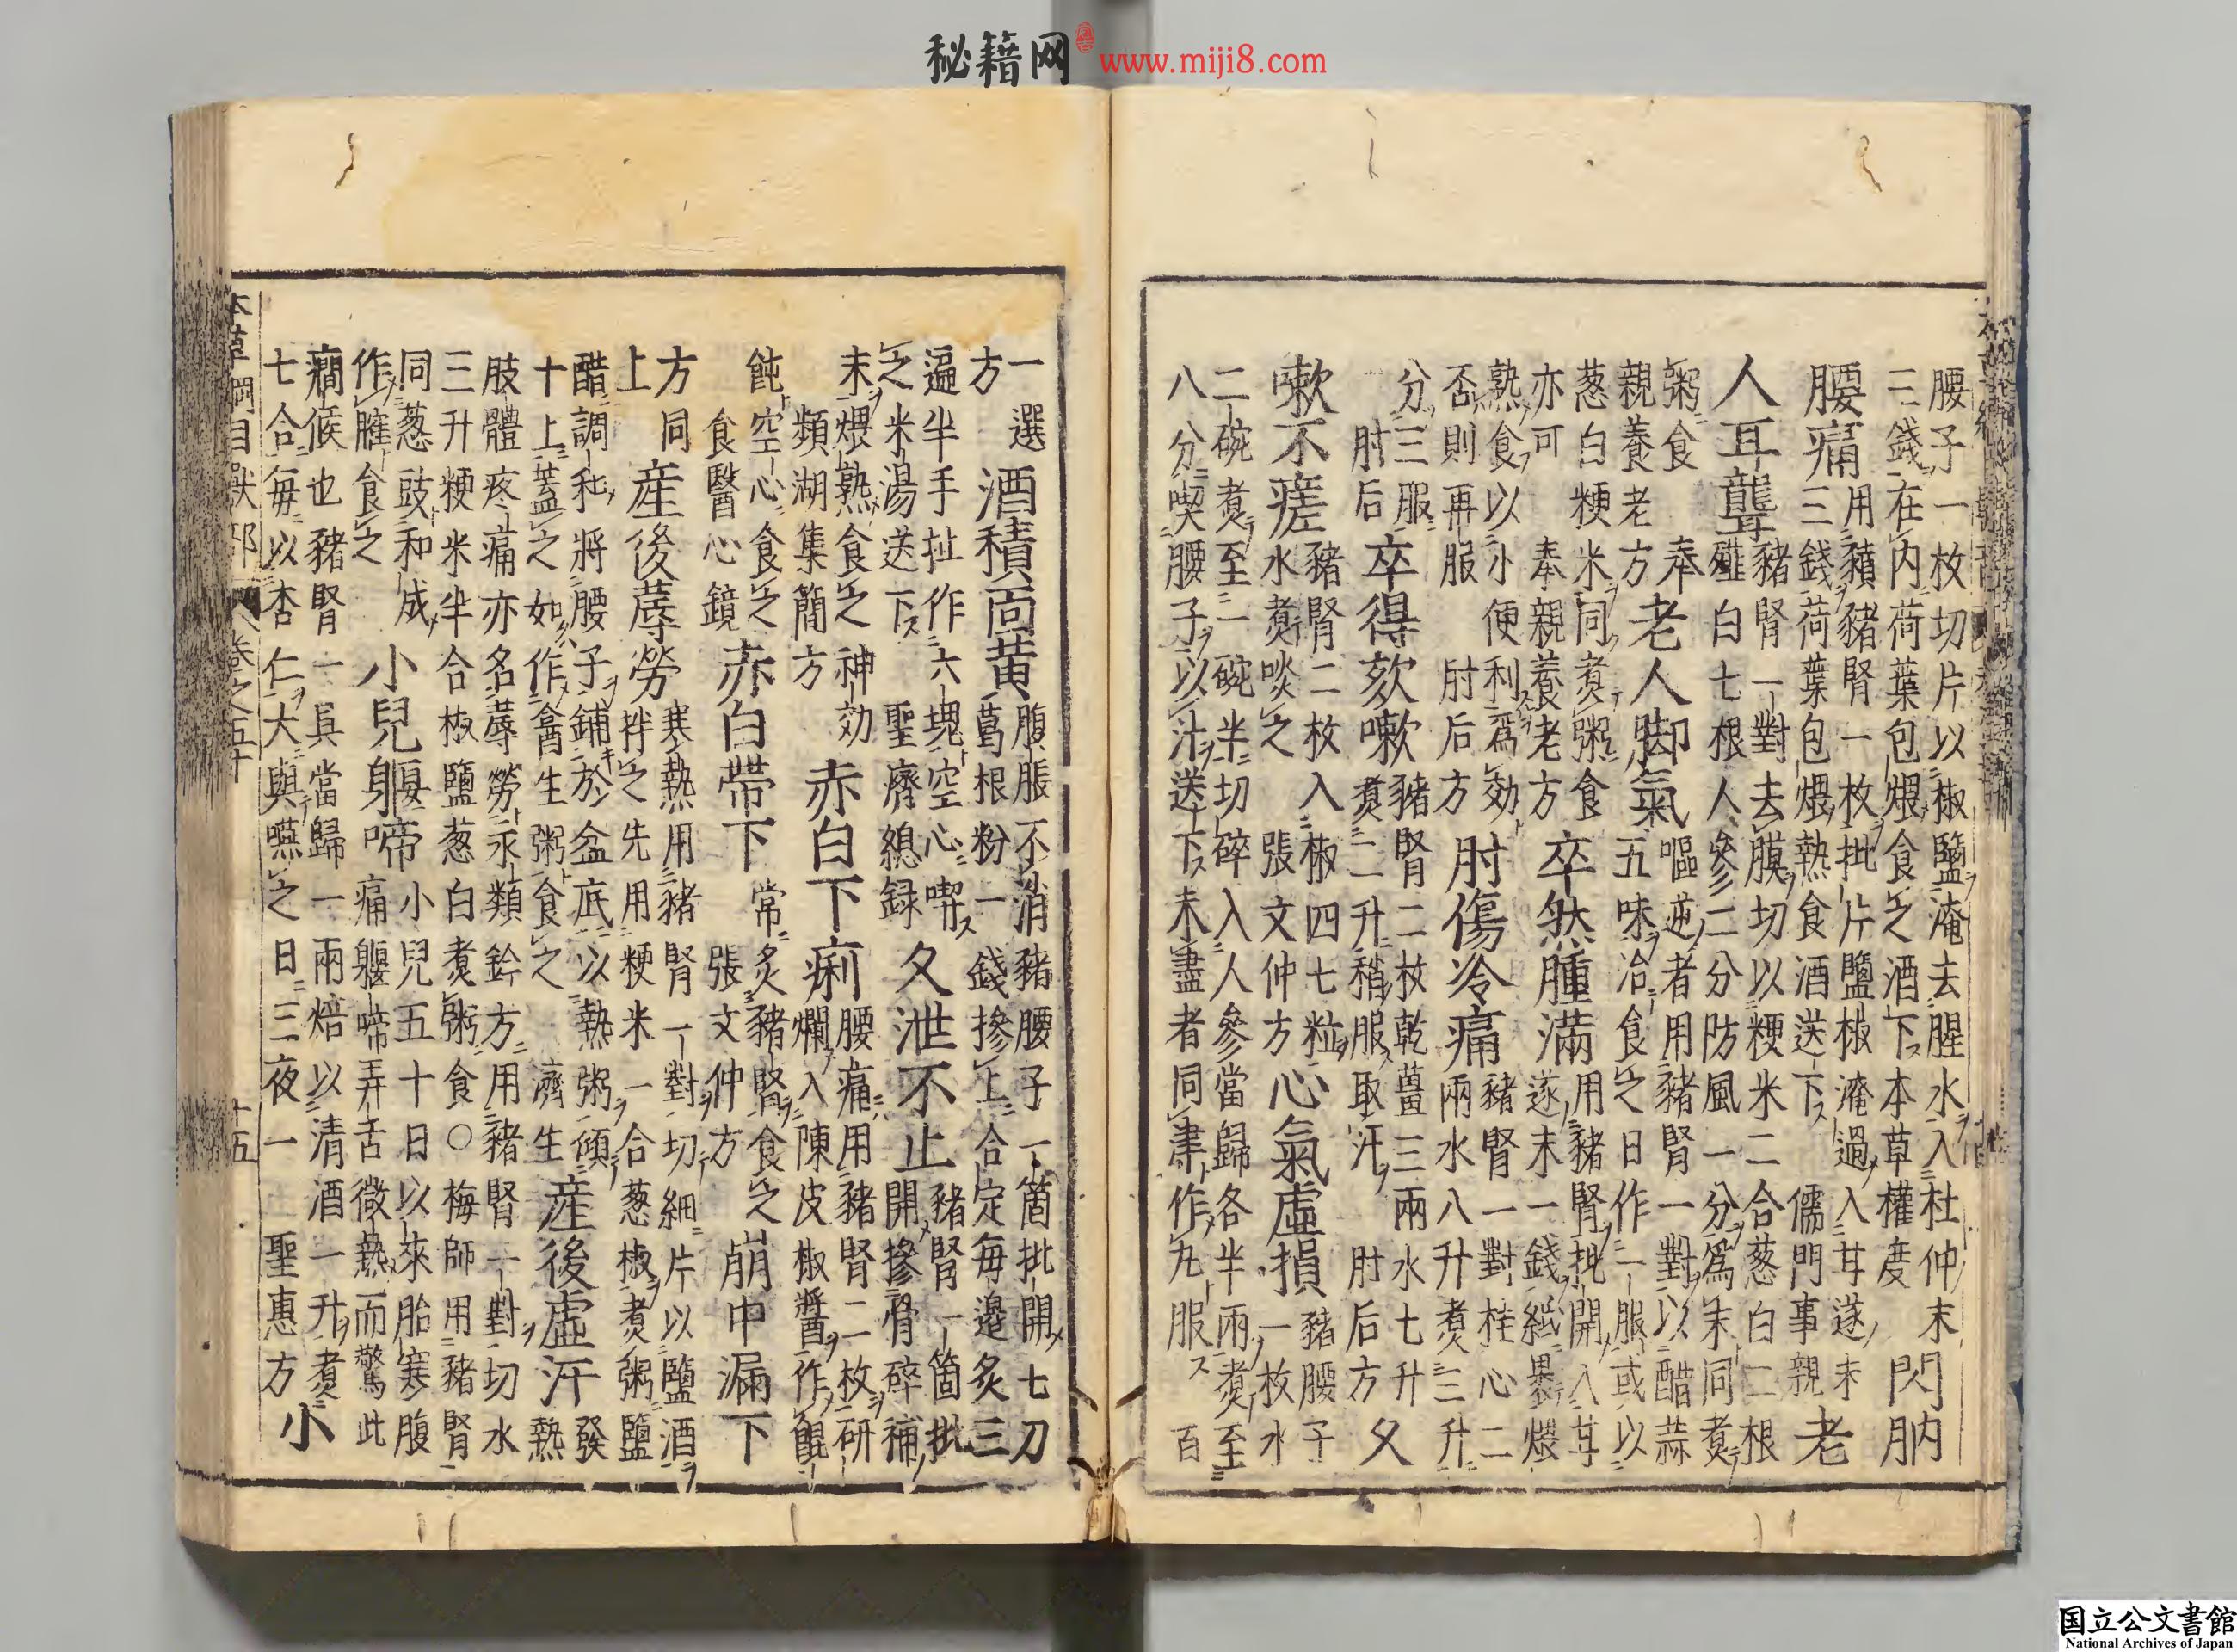 秘籍网 www.miji8.com
腰子一枚切片以椒鹽淹去腥水入杜仲末
三錢在内荷葉包煨食之酒下本草權度
閃肭
腰痛
用豶豬腎一枚批片鹽椒淹過入甘遂末
三錢荷葉包煨熟食酒送下 儒門事親
老
人耳聾
豬腎一對去膜切以粳米二合葱白二根
薤白七根人參二分防風一分爲末同煮
粥食 奉
親養老方
老人脚氣
嘔逆者用豬腎一對以醋蒜
五味治食之日作一服或以
葱白粳米同煮粥食
亦可 奉親養老方
卒然腫滿
用豬腎批開入甘
遂末一錢紙裹煨
熟食以小便利爲効
否則再服 肘后方
肘傷冷痛
豬腎一對桂心二
兩水八升煮三升
分三服
肘后
卒得欬嗽
豬腎二枚乾薑三兩水七升
煮二升稍服取汗 肘后方
久
嗽不瘥
豬腎二枚入椒四七粒
水煮啖之 張文仲方
心氣虛損
豬腰子
一枚水
二碗煮至一碗半切碎入人參當歸各半兩煮至
八分喫腰子以汁送下未盡者同滓作丸服 百
一選
方
酒積面黄
腹脹不消豬腰子一箇批開七刀
葛根粉一錢摻上合定每邊炙三
遍半手扯作六塊空心喫
之米湯送下 聖濟總録
久泄不止
豬腎一箇批
開摻骨碎補
末煨熟食之神効
類湖集簡方
赤白下痢
腰痛用豬腎二枚研
爛入陳皮椒醬作餛
飩空心食之
食醫心鏡
赤白帶下
常炙豬腎食之
張文仲方
崩中漏下
方同
上
産後蓐勞
寒熱用豬腎一對切細片以鹽酒
拌之先用粳米一合葱椒煮粥鹽
醋調和將腰子鋪於盆底以熱粥傾
十上蓋之如作盦生粥食之 濟生
産後虛汗
發
熱
肢體疼痛亦名蓐勞永類鈐方用豬腎一對切水
三升粳米半合椒鹽葱白煮粥食○梅師用豬腎
同葱豉和成
作臛食之
小兒躽啼
小兒五十日以來胎寒腹
痛躽啼弄舌微熱而驚此
癎候也豬腎一具當歸一兩焙以清酒一升煮
七合每以杏仁大與嚥之日三夜一 聖惠方
小
本草綱目獸部 卷之五十 十五
国立公文書館
National Archives of Japan